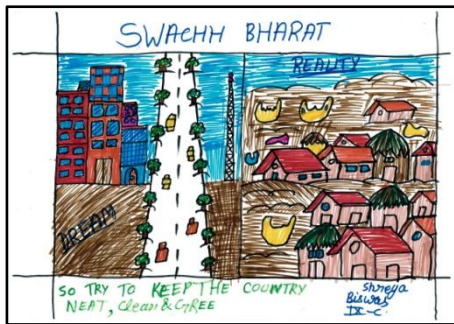 SWACHH BHARAT
REALITY
DREAM
SO TRY TO KEEP THE COUNTRY
NEAT, Clean & GREE
Shreya
Biswas
IX-C.